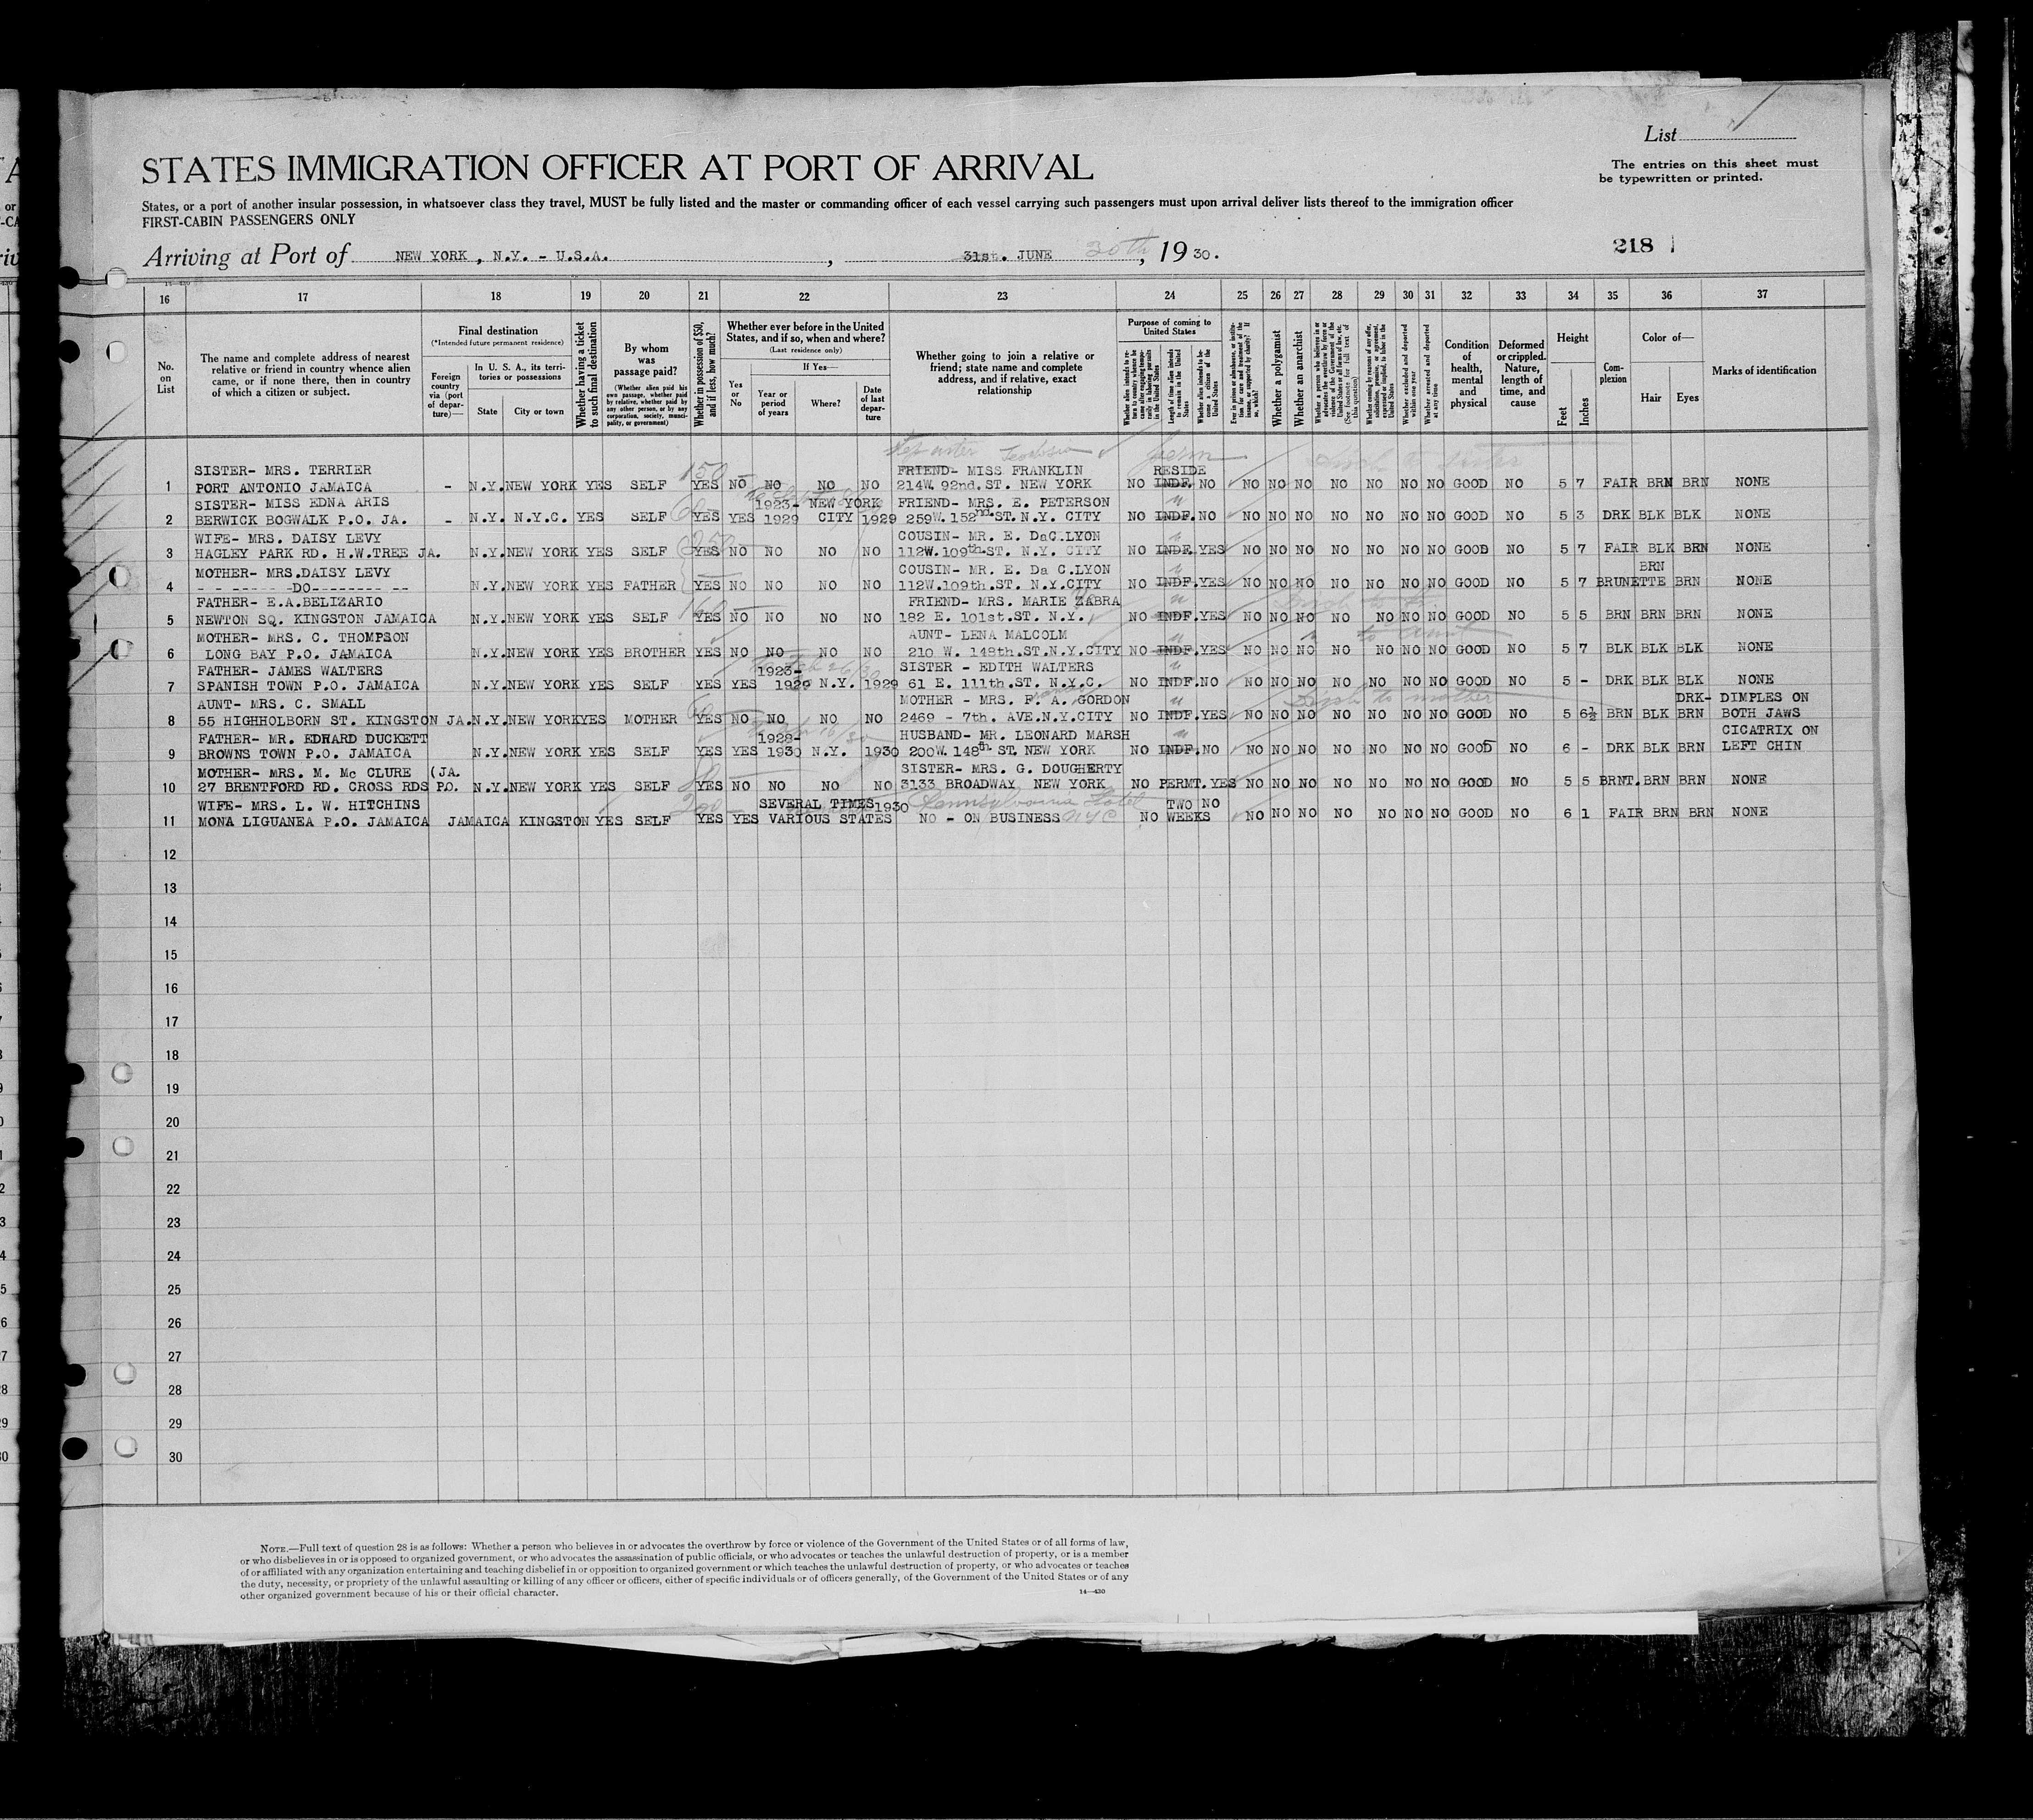 List
STATES IMMIGRATION OFFICER AT PORT OF ARRIVAL
The entries on this sheet must
be typewritten or printed.
States, or a port of another insular possession, in whatsoever class they travel, MUST be fully listed and the master or commanding officer of each vessel carrying such passengers must upon arrival deliver lists thereof to the immigration officer
FIRST-CABIN PASSENGERS ONLY
Arriving at Port of NEW YORK, N.Y. - U.S.A. , 31st. JUNE 30th, 19 30.
218
16 17 18 19 20 21 22 23 24 25 26 27 28 29 30 31 32 33 34 35 36 37
No. on List
The name and complete address of nearest
relative or friend in country whence alien
came, or if none there, then in country
of which a citizen or subject.
Final destination
(*Intended future permanent residence)
Foreign country via (port of departure)—
In U. S. A., its territories or possessions
State
City or town
Whether having a ticket to such final destination
By whom was passage paid?
(Whether alien paid his own passage, whether paid by relative, whether paid by any other person, or by any corporation, society, municipality, or government)
Whether in possession of $50, and if less, how much?
Whether ever before in the United States, and if so, when and where?
(Last residence only)
If Yes—
Yes or No
Year or period of years
Where?
Date of last departure
Whether going to join a relative or
friend; state name and complete
address, and if relative, exact
relationship
Purpose of coming to United States
Length of time alien intends to remain in the United States
Whether alien intends to become citizen of the United States
Whether a polygamist
Whether an anarchist
Whether excluded and deported within one year
Whether arrested and deported at any time
Condition of health, mental and physical
Deformed or crippled. Nature, length of time, and cause
Height
Feet
Inches
Complexion
Color of—
Hair
Eyes
Marks of identification
perm
SISTER- MRS. TERRIER 150 FRIEND- MISS FRANKLIN RESIDE
1 PORT ANTONIO JAMAICA - N.Y. NEW YORK YES SELF YES NO NO NO NO 214W. 92nd. ST. NEW YORK NO INDF. NO NO NO NO NO NO NO NO GOOD NO 5 7 FAIR BRN BRN NONE
SISTER- MISS EDNA ARIS 1923- NEW YORK FRIEND- MRS. E. PETERSON
2 BERWICK BOGWALK P.O. JA. - N.Y. N.Y.C. YES SELF YES YES 1929 CITY 1929 259W. 152nd ST. N.Y. CITY NO INDF. NO NO NO NO NO NO NO NO GOOD NO 5 3 DRK BLK BLK NONE
WIFE- MRS. DAISY LEVY COUSIN- MR. E. DaC.LYON
3 HAGLEY PARK RD. H.W.TREE JA. N.Y. NEW YORK YES SELF YES NO NO NO NO 112W. 109th ST. N.Y. CITY NO INDF. YES NO NO NO NO NO NO NO GOOD NO 5 7 FAIR BLK BRN NONE
MOTHER- MRS.DAISY LEVY COUSIN- MR. E. Da C.LYON BRN
4 - - ----- -DO-------- -- N.Y. NEW YORK YES FATHER YES NO NO NO NO 112W.109th.ST. N.Y.CITY NO INDF. YES NO NO NO NO NO NO NO GOOD NO 5 7 BRUNETTE BRN NONE
FATHER- E.A.BELIZARIO FRIEND- MRS. MARIE ZABRA
5 NEWTON SQ. KINGSTON JAMAICA N.Y. NEW YORK YES SELF YES NO NO NO NO 182 E. 101st.ST. N.Y. NO INDF. YES NO NO NO NO NO NO NO GOOD NO 5 5 BRN BRN BRN NONE
MOTHER- MRS. C. THOMPSON AUNT- LENA MALCOLM to aunt
6 LONG BAY P.O. JAMAICA N.Y. NEW YORK YES BROTHER YES NO NO NO NO 210 W. 148th.ST.N.Y.CITY NO INDF. YES NO NO NO NO NO NO NO GOOD NO 5 7 BLK BLK BLK NONE
FATHER- JAMES WALTERS 1923- SISTER - EDITH WALTERS
7 SPANISH TOWN P.O. JAMAICA N.Y. NEW YORK YES SELF YES YES 1929 N.Y. 1929 61 E. 111th.ST. N.Y.C. NO INDF. NO NO NO NO NO NO NO NO GOOD NO 5 - DRK BLK BLK NONE
AUNT- MRS. C. SMALL MOTHER - MRS. F. A. GORDON to mother DRK- DIMPLES ON
8 55 HIGHHOLBORN ST. KINGSTON JA. N.Y. NEW YORK YES MOTHER YES NO NO NO NO 2469 - 7th. AVE.N.Y.CITY NO INDF. YES NO NO NO NO NO NO NO GOOD NO 5 6½ BRN BLK BRN BOTH JAWS
FATHER- MR. EDWARD DUCKETT 1928- HUSBAND- MR. LEONARD MARSH CICATRIX ON
9 BROWNS TOWN P.O. JAMAICA N.Y. NEW YORK YES SELF YES YES 1930 N.Y. 1930 200W. 148th ST. NEW YORK NO INDF. NO NO NO NO NO NO NO NO GOOD NO 6 - DRK BLK BRN LEFT CHIN
MOTHER- MRS. M. Mc CLURE (JA. SISTER- MRS. G. DOUGHERTY
10 27 BRENTFORD RD. CROSS RDS P.O. N.Y. NEW YORK YES SELF YES NO NO NO NO 3133 BROADWAY NEW YORK NO PERMT. YES NO NO NO NO NO NO NO GOOD NO 5 5 BRNT. BRN BRN NONE
WIFE- MRS. L. W. HITCHINS SEVERAL TIMES 1930 Pennsylvania Hotel TWO NO
11 MONA LIGUANEA P.O. JAMAICA JAMAICA KINGSTON YES SELF YES YES VARIOUS STATES NO - ON BUSINESS NYC NO WEEKS NO NO NO NO NO NO NO GOOD NO 6 1 FAIR BRN BRN NONE
12
13
14
15
16
17
18
19
20
21
22
23
24
25
26
27
28
29
30
NOTE.—Full text of question 28 is as follows: Whether a person who believes in or advocates the overthrow by force or violence of the Government of the United States or of all forms of law,
or who disbelieves in or is opposed to organized government, or who advocates the assassination of public officials, or who advocates or teaches the unlawful destruction of property, or is a member
of or affiliated with any organization entertaining and teaching disbelief in or opposition to organized government or which teaches the unlawful destruction of property, or who advocates or teaches
the duty, necessity, or propriety of the unlawful assaulting or killing of any officer or officers, either of specific individuals or of officers generally, of the Government of the United States or of any
other organized government because of his or their official character.
14—430